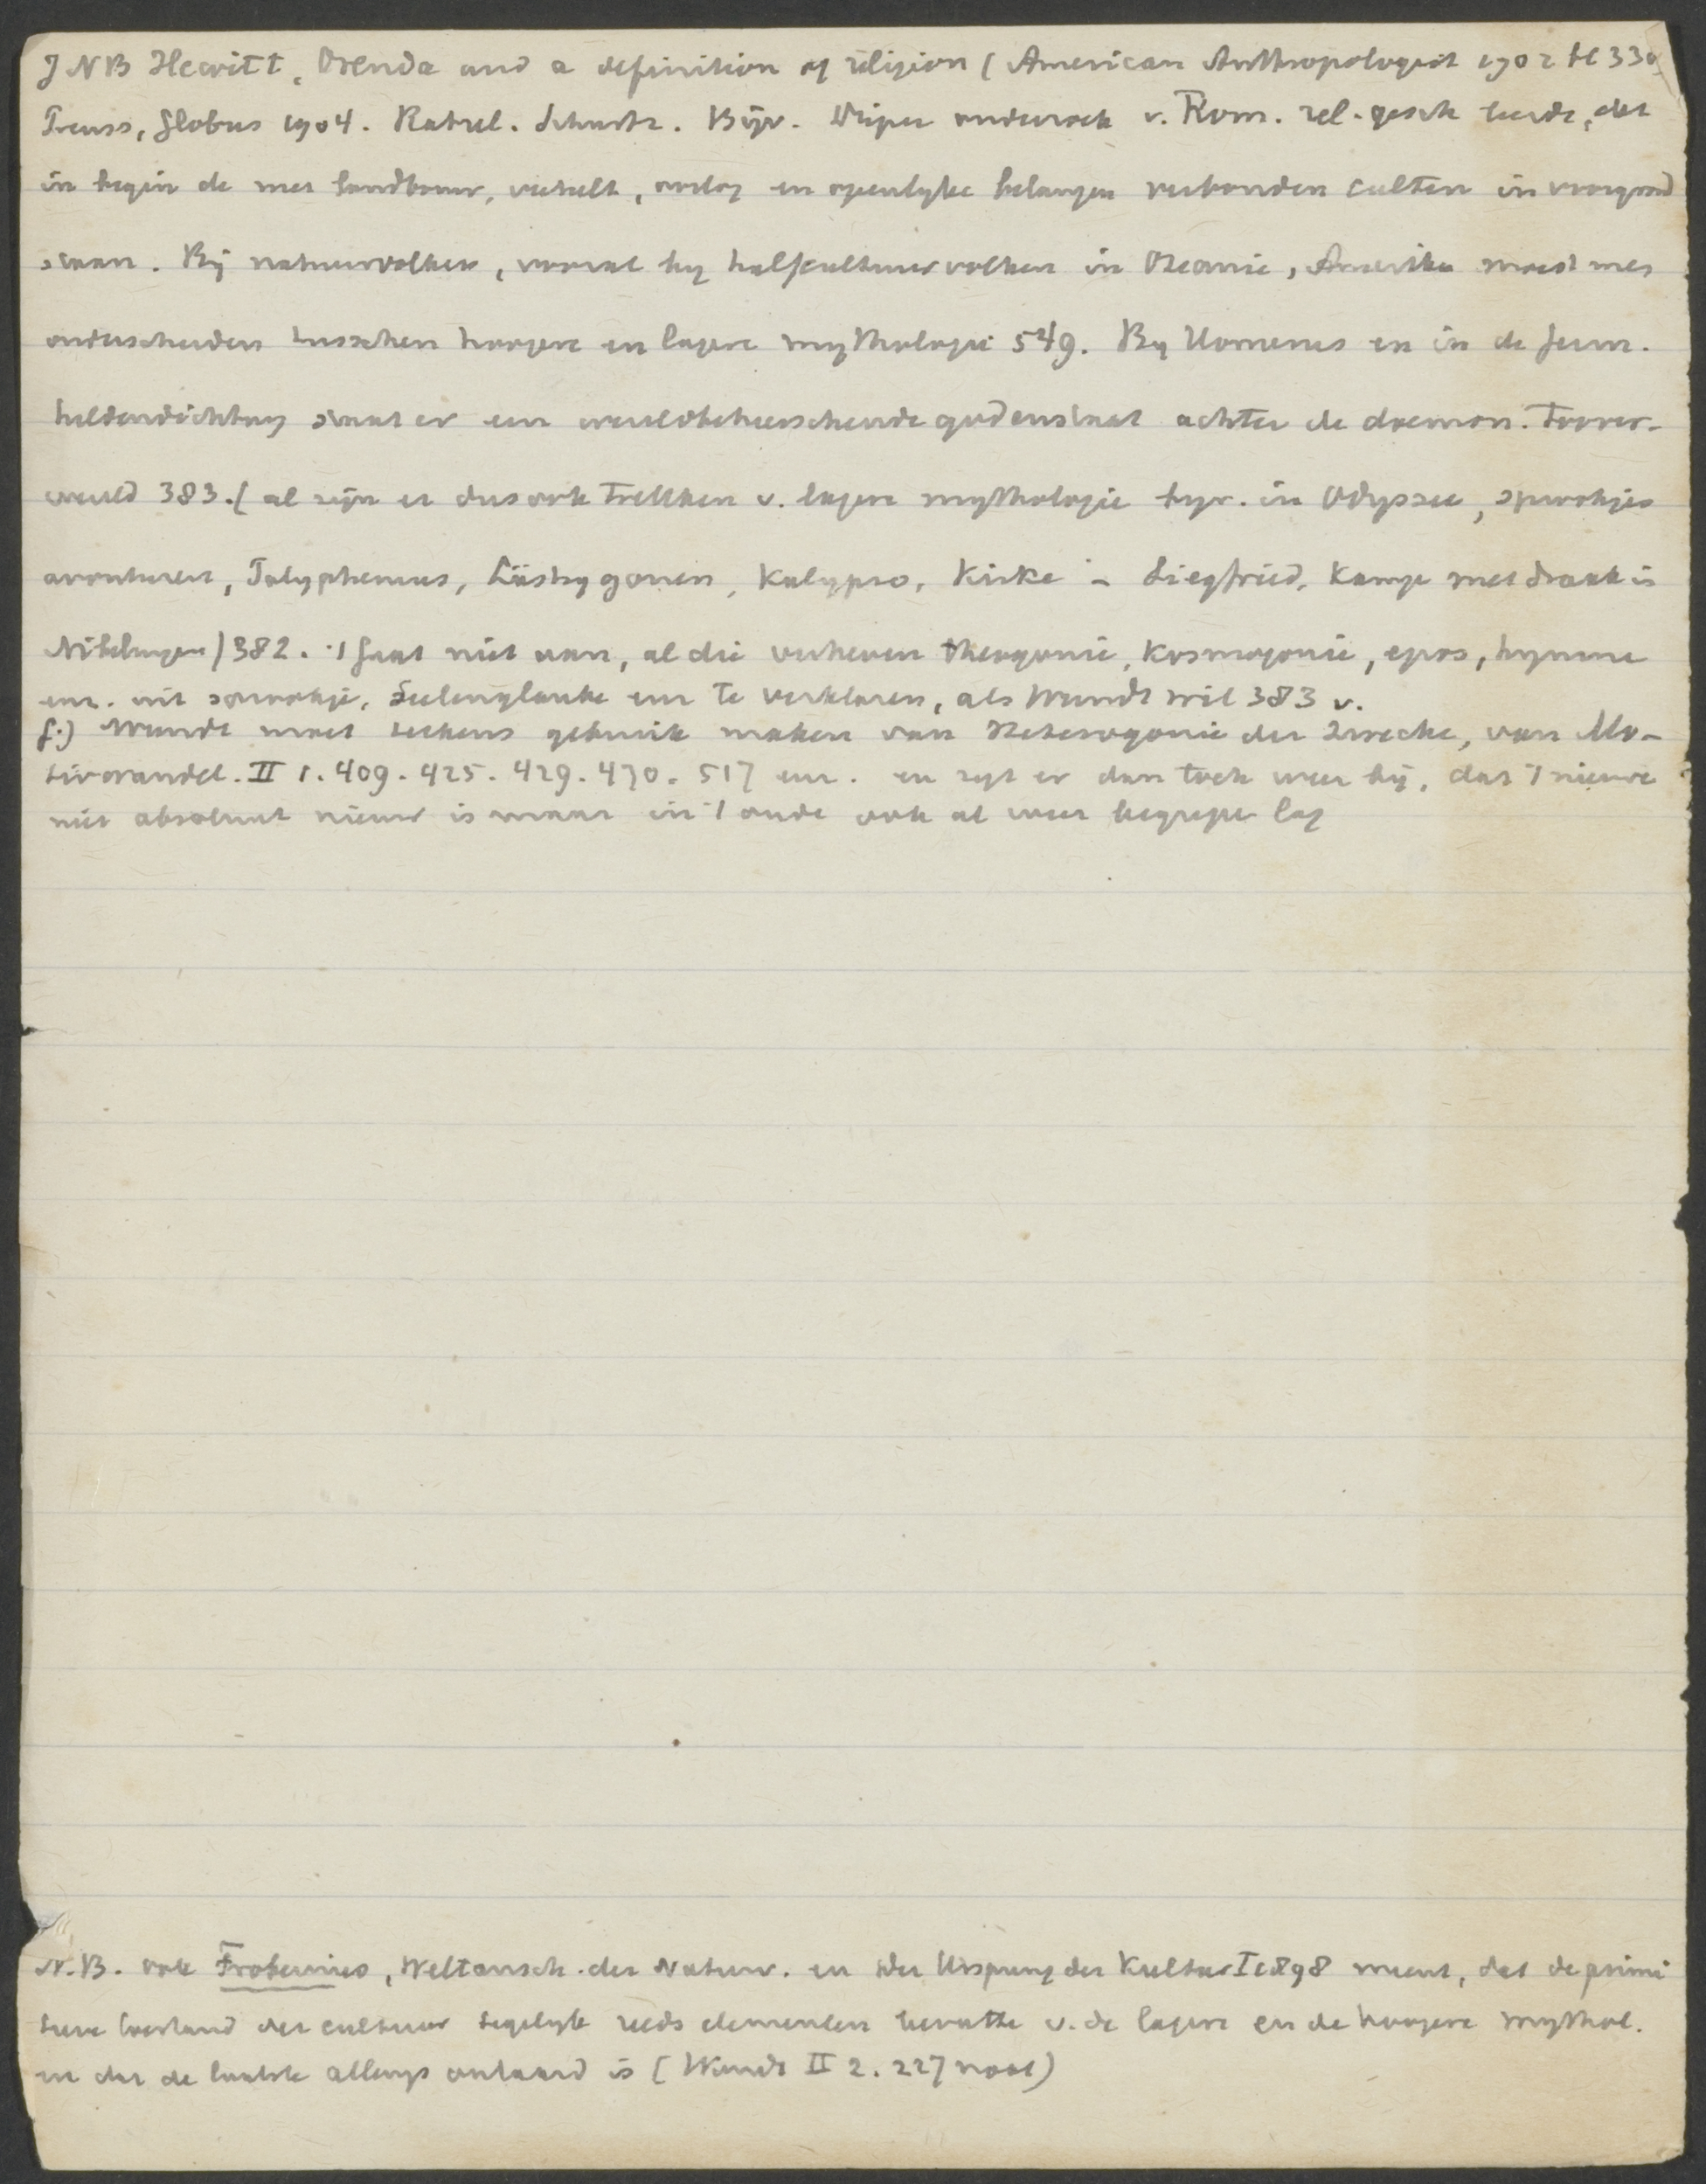 JNB Hewitt, Orenda and a definition of religion (American Anthropologist 1902 bl 33
Preuss, Globus 1904. Ratzel. Schurtz. Bijv. Dieper onderzoek v. Rom. rel. gesch leerde, dat
in begin de met landbouw, veeteelt, oorlog en openlyke belangen verbonden culten in voorgrond
staan. Bij natuurvolken, vooral by halfcultuurvolken in Oceanie, Amerika moet men
onderscheiden tusschen hoogere en lagere mythologie 549. By Homerus en in de Germ.
heldendichting staat er een wereldbeheerschende godenstaat achter de daemon. toover-
wereld 383. (al zijn er dus ook trekken v. lagere mythologie byv. in Odyssee, sprookjes
avonturen, Polyphemus, Lästrygonen, Kalypso, Kirke in Siegfried, Kamp met draak in
Nibelungen) 382. 't Gaat niet aan, al die verheven theogonie, kosmogonie, epos, hymne
enz. uit sprookje, Seelenglaube enz te verklaren, als Wundt wil 383 v.
f.) Wundt moet telkens gebruik maken van Heterogonie der Zwecke, van Mo-
tivwandel. II 1. 409. 425. 429. 430. 517 enz. en zegt er dan toch weer bij, dat 't nieuwe
niet absoluut nieuw is maar in 't oude ook al weer begrepen lag
N.B. ook Frobenius, Weltansch. der Naturv. en Der Ursprung der Kultur I 1898 meent, dat de primi
tieve toestand der cultuur tegelyk reeds elementen bevatte v. de lagere en de hoogere mythol.
en dat de laatste allengs ontaard is (Wundt II 2. 227 noot)